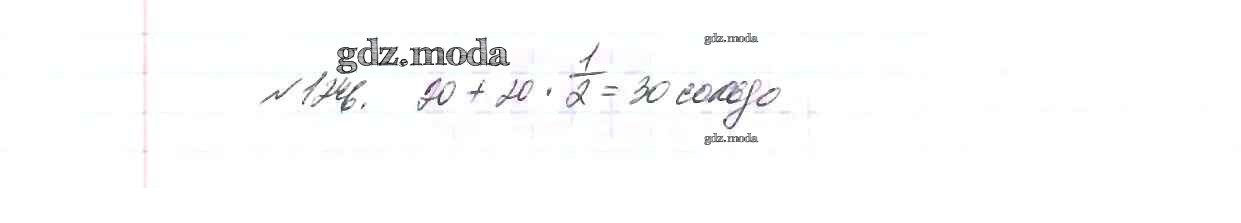 gdz.moda
gdz.moda
№ 1246. 20 + 20 · 1/2 = 30 сольдо
gdz.moda